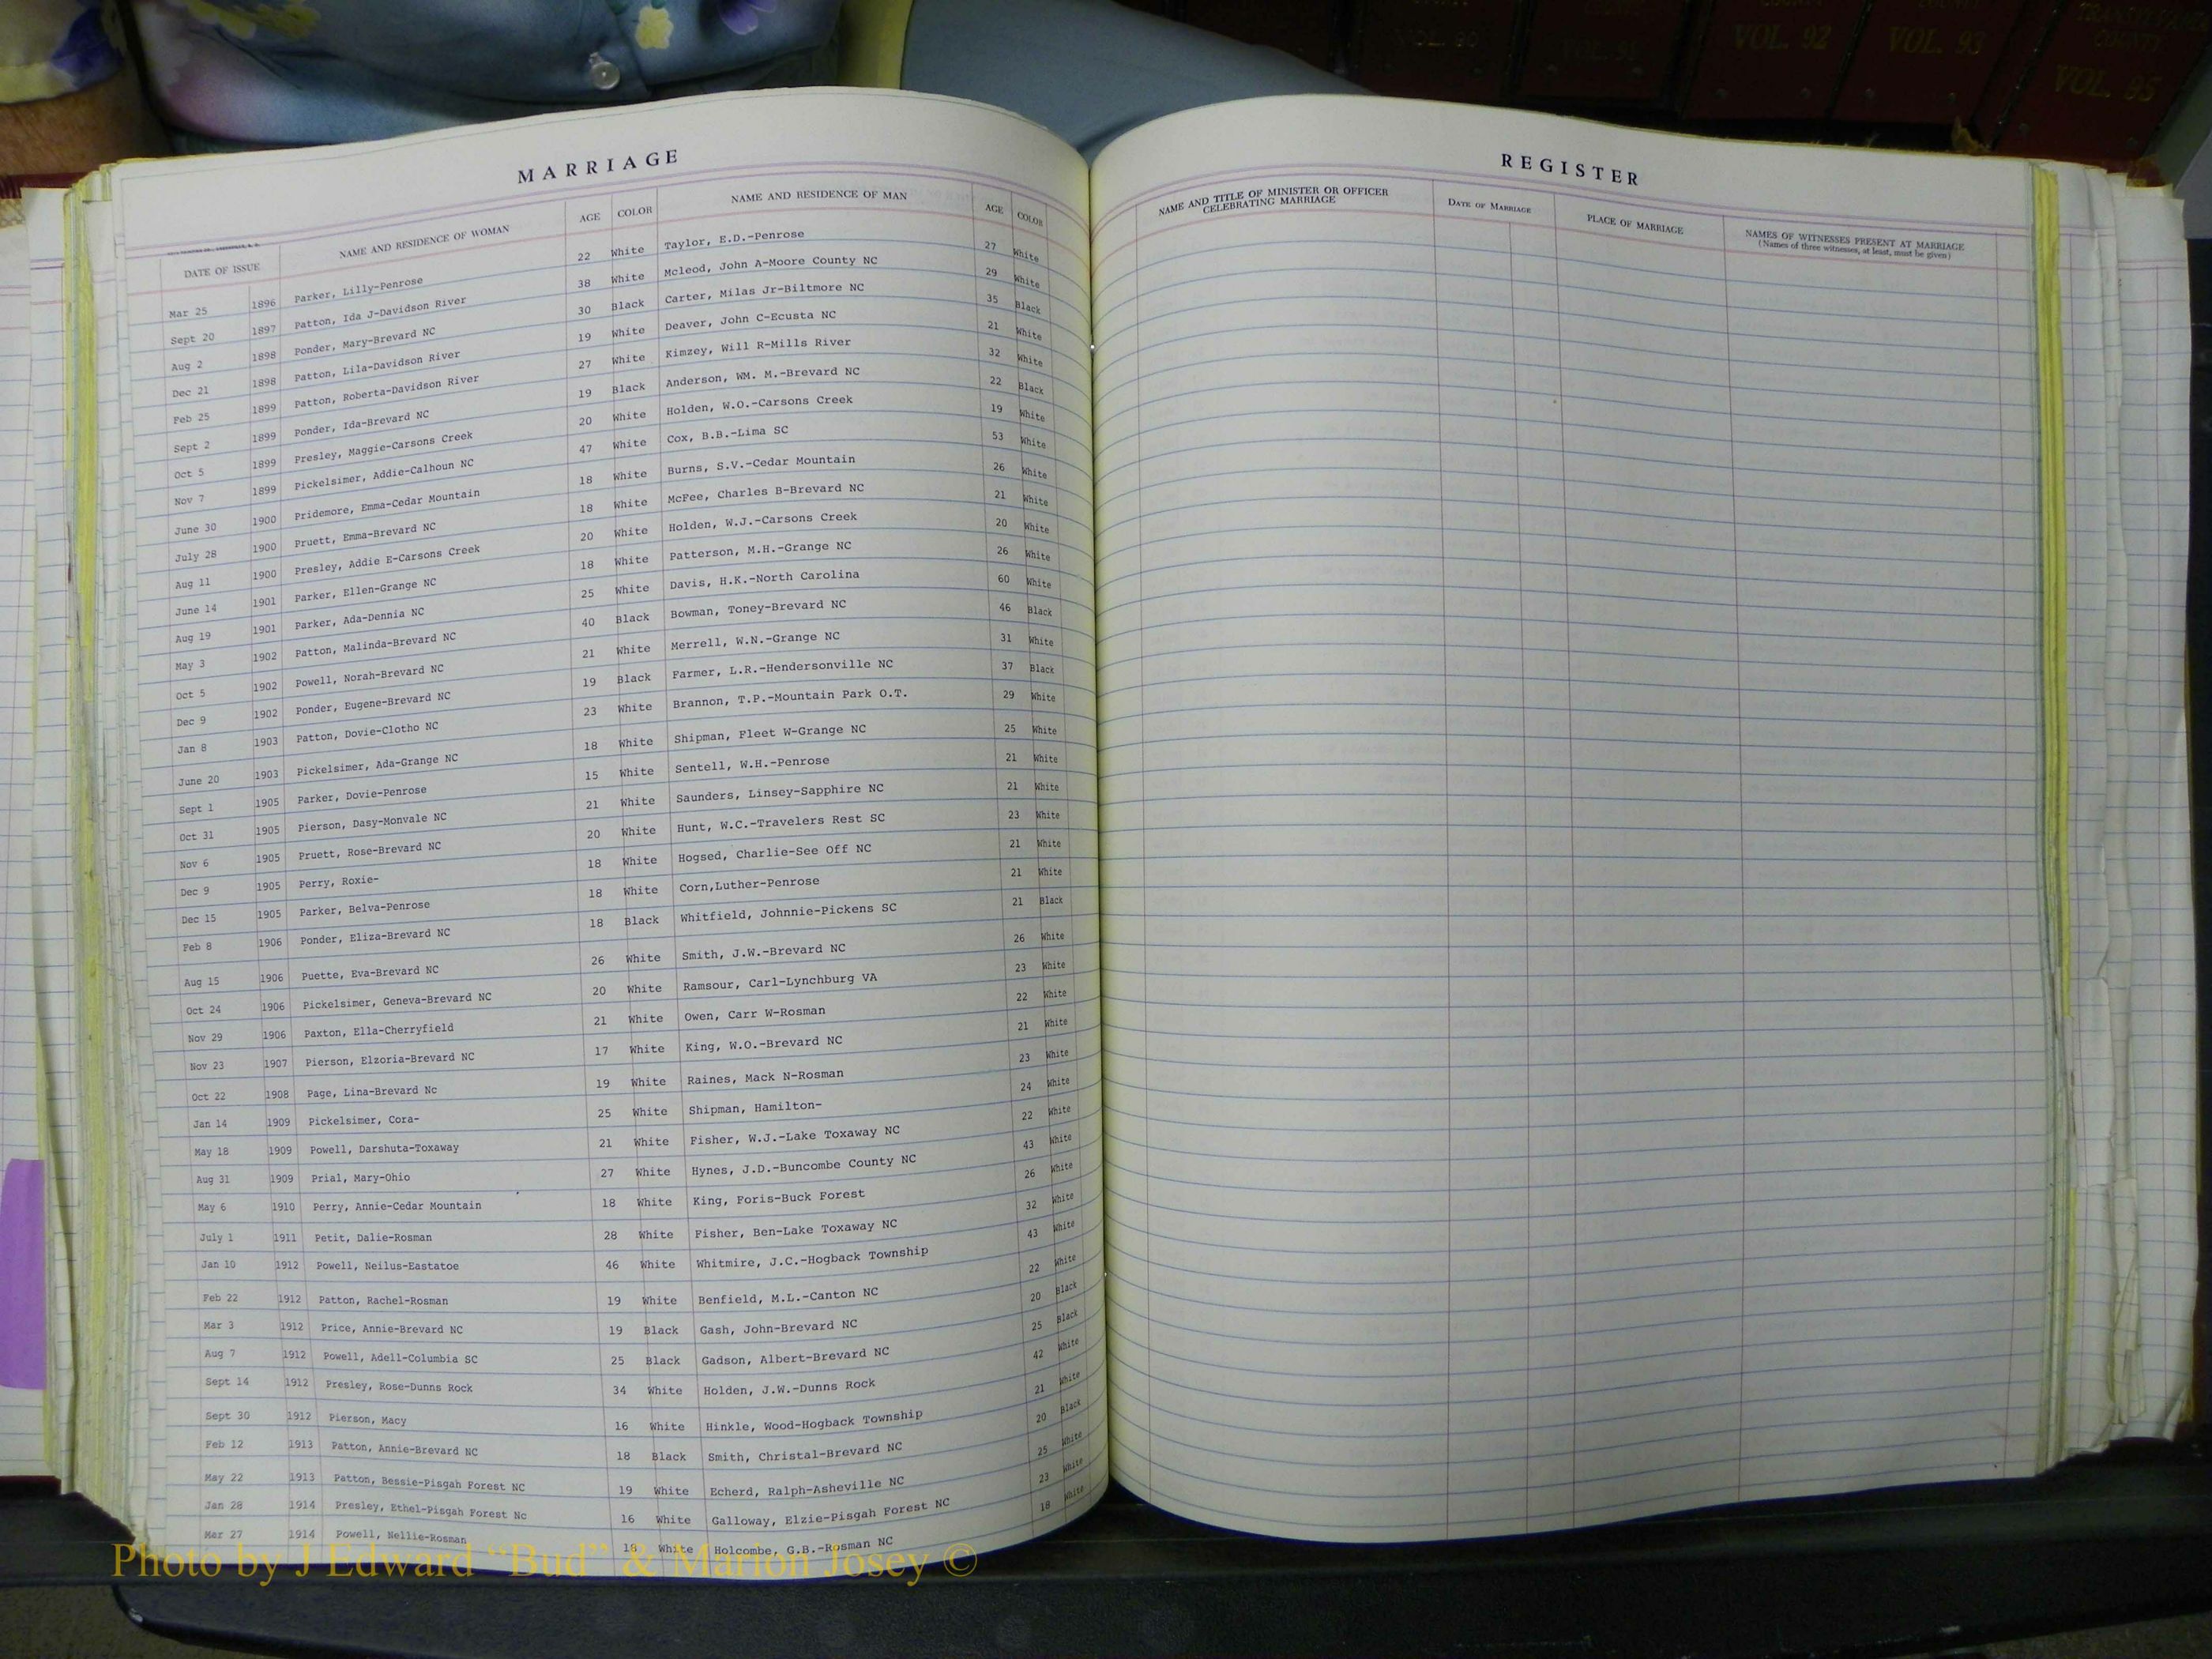 VOL. 90
VOL. 91
COUNTY
VOL. 92
COUNTY
VOL. 93
TRANSYLVANIA
COUNTY
VOL. 95
MARRIAGE
DATE OF ISSUE NAME AND RESIDENCE OF WOMAN AGE COLOR NAME AND RESIDENCE OF MAN AGE COLOR
Mar 25 1896 Parker, Lilly-Penrose 22 White Taylor, E.D.-Penrose 27 White
Sept 20 1897 Patton, Ida J-Davidson River 38 White Mcleod, John A-Moore County NC 29 White
Aug 2 1898 Ponder, Mary-Brevard NC 30 Black Carter, Milas Jr-Biltmore NC 35 Black
Dec 21 1898 Patton, Lila-Davidson River 19 White Deaver, John C-Ecusta NC 21 White
Feb 25 1899 Patton, Roberta-Davidson River 27 White Kimzey, Will R-Mills River 32 White
Sept 2 1899 Ponder, Ida-Brevard NC 19 Black Anderson, WM. M.-Brevard NC 22 Black
Oct 5 1899 Presley, Maggie-Carsons Creek 20 White Holden, W.O.-Carsons Creek 19 White
Nov 7 1899 Pickelsimer, Addie-Calhoun NC 47 White Cox, B.B.-Lima SC 53 White
June 30 1900 Pridemore, Emma-Cedar Mountain 18 White Burns, S.V.-Cedar Mountain 26 White
July 28 1900 Pruett, Emma-Brevard NC 18 White McFee, Charles B-Brevard NC 21 White
Aug 11 1900 Presley, Addie E-Carsons Creek 20 White Holden, W.J.-Carsons Creek 20 White
June 14 1901 Parker, Ellen-Grange NC 18 White Patterson, M.H.-Grange NC 26 White
Aug 19 1901 Parker, Ada-Dennia NC 25 White Davis, H.K.-North Carolina 60 White
May 3 1902 Patton, Malinda-Brevard NC 40 Black Bowman, Toney-Brevard NC 46 Black
Oct 5 1902 Powell, Norah-Brevard NC 21 White Merrell, W.N.-Grange NC 31 White
Dec 9 1902 Ponder, Eugene-Brevard NC 19 Black Farmer, L.R.-Hendersonville NC 37 Black
Jan 8 1903 Patton, Dovie-Clotho NC 23 White Brannon, T.P.-Mountain Park O.T. 29 White
June 20 1903 Pickelsimer, Ada-Grange NC 18 White Shipman, Fleet W-Grange NC 25 White
Sept 1 1905 Parker, Dovie-Penrose 15 White Sentell, W.H.-Penrose 21 White
Oct 31 1905 Pierson, Dasy-Monvale NC 21 White Saunders, Linsey-Sapphire NC 21 White
Nov 6 1905 Pruett, Rose-Brevard NC 20 White Hunt, W.C.-Travelers Rest SC 23 White
Dec 9 1905 Perry, Roxie- 18 White Hogsed, Charlie-See Off NC 21 White
Dec 15 1905 Parker, Belva-Penrose 18 White Corn,Luther-Penrose 21 White
Feb 8 1906 Ponder, Eliza-Brevard NC 18 Black Whitfield, Johnnie-Pickens SC 21 Black
Aug 15 1906 Puette, Eva-Brevard NC 26 White Smith, J.W.-Brevard NC 26 White
Oct 24 1906 Pickelsimer, Geneva-Brevard NC 20 White Ramsour, Carl-Lynchburg VA 23 White
Nov 29 1906 Paxton, Ella-Cherryfield 21 White Owen, Carr W-Rosman 22 White
Nov 23 1907 Pierson, Elzoria-Brevard NC 17 White King, W.O.-Brevard NC 21 White
Oct 22 1908 Page, Lina-Brevard Nc 19 White Raines, Mack N-Rosman 23 White
Jan 14 1909 Pickelsimer, Cora- 25 White Shipman, Hamilton- 24 White
May 18 1909 Powell, Darshuta-Toxaway 21 White Fisher, W.J.-Lake Toxaway NC 22 White
Aug 31 1909 Prial, Mary-Ohio 27 White Hynes, J.D.-Buncombe County NC 43 White
May 6 1910 Perry, Annie-Cedar Mountain 18 White King, Foris-Buck Forest 26 White
July 1 1911 Petit, Dalie-Rosman 28 White Fisher, Ben-Lake Toxaway NC 32 White
Jan 10 1912 Powell, Neilus-Eastatoe 46 White Whitmire, J.C.-Hogback Township 43 White
Feb 22 1912 Patton, Rachel-Rosman 19 White Benfield, M.L.-Canton NC 22 White
Mar 3 1912 Price, Annie-Brevard NC 19 Black Gash, John-Brevard NC 20 Black
Aug 7 1912 Powell, Adell-Columbia SC 25 Black Gadson, Albert-Brevard NC 25 Black
Sept 14 1912 Presley, Rose-Dunns Rock 34 White Holden, J.W.-Dunns Rock 42 White
Sept 30 1912 Pierson, Macy 16 White Hinkle, Wood-Hogback Township 21 White
Feb 12 1913 Patton, Annie-Brevard NC 18 Black Smith, Christal-Brevard NC 20 Black
May 22 1913 Patton, Bessie-Pisgah Forest NC 19 White Echerd, Ralph-Asheville NC 25 White
Jan 28 1914 Presley, Ethel-Pisgah Forest Nc 16 White Galloway, Elzie-Pisgah Forest NC 23 White
Mar 27 1914 Powell, Nellie-Rosman 18 White Holcombe, G.B.-Rosman NC 18 White
REGISTER
NAME AND TITLE OF MINISTER OR OFFICER
CELEBRATING MARRIAGE
DATE OF MARRIAGE
PLACE OF MARRIAGE
NAMES OF WITNESSES PRESENT AT MARRIAGE
(Names of three witnesses, at least, must be given)
Photo by J Edward “Bud” & Marion Josey ©